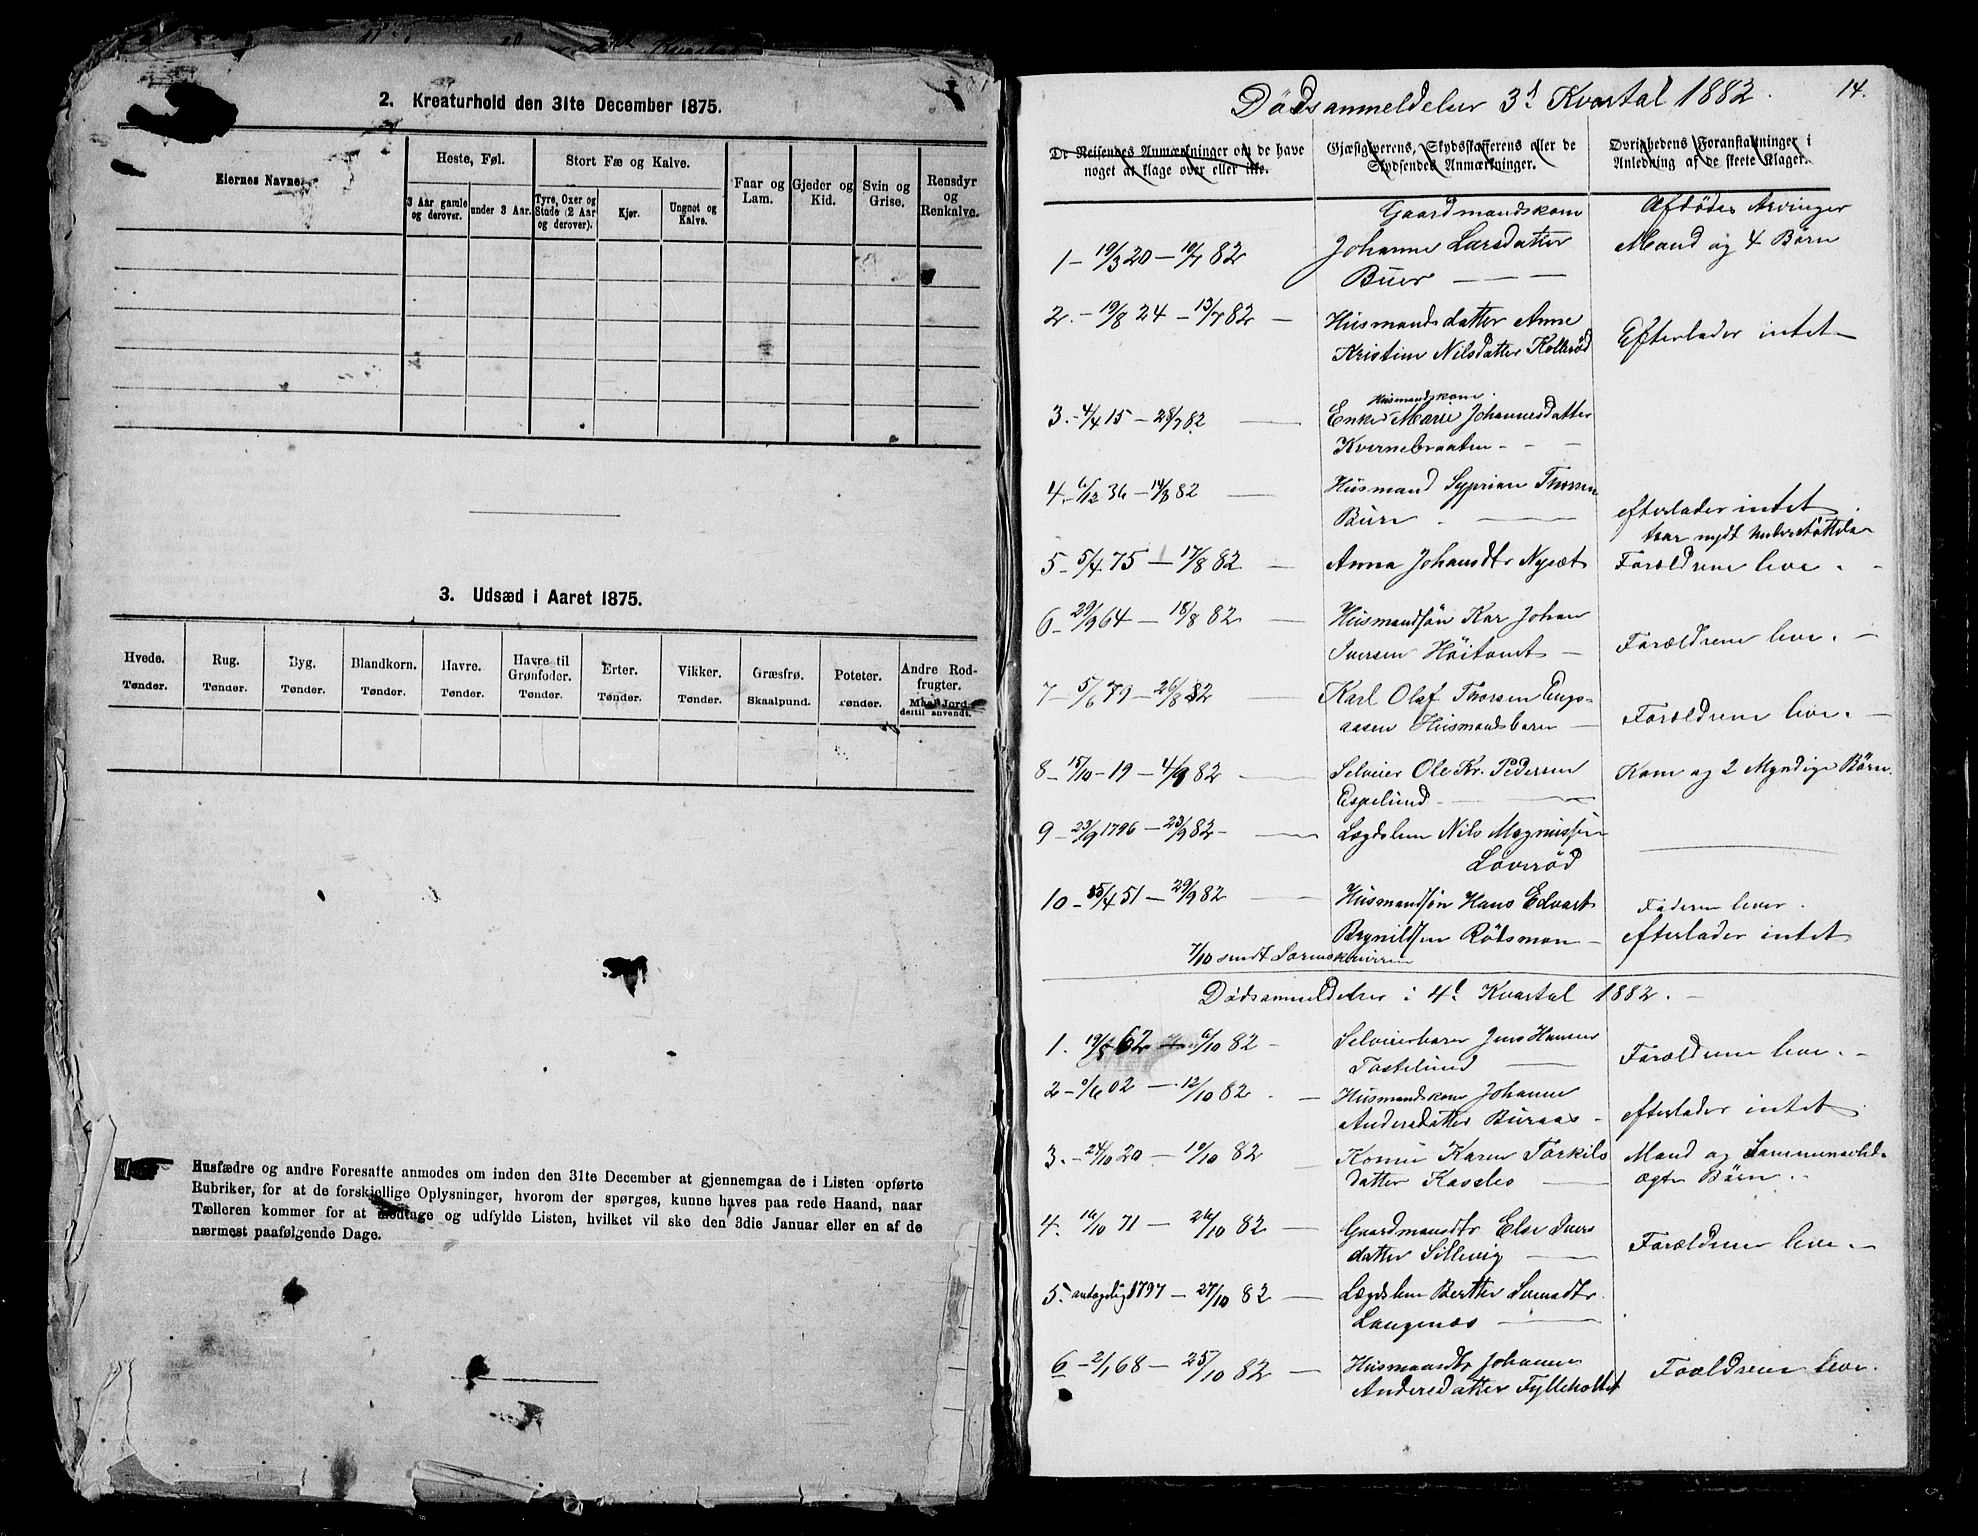 2. Kreaturhold den 31te December 1875.
Eiernes Navne.
Heste, Føl.
Stort Fæ og Kalve.
Faar og Lam.
Gjeder og Kid.
Svin og Grise.
Rensdyr og Renkalve.
3 Aar gamle og derover.
under 3 Aar.
Tyre, Oxer og Stude (2 Aar og derover).
Kjør.
Ungnøt og Kalve.
3. Udsæd i Aaret 1875.
Hvede. Tønder.
Rug. Tønder.
Byg. Tønder.
Blandkorn. Tønder.
Havre. Tønder.
Havre til Grønfoder. Tønder.
Erter. Tønder.
Vikker. Tønder.
Græsfrø. Skaalpund.
Poteter. Tønder.
Andre Rodfrugter. Maal Jord dertil anvendt.
Husfædre og andre Foresatte anmodes om inden den 31te December at gjennemgaa de i Listen opførte
Rubriker, for at de forskjellige Oplysninger, hvorom der spørges, kunne haves paa rede Haand, naar
Tælleren kommer for at modtage og udfylde Listen, hvilket vil ske den 3die Januar eller en af de
nærmest paafølgende Dage.
Dødsanmeldelser 3d Kvartal 1882. 14.
De Reisendes Anmærkninger om de have noget at klage over eller ikke.
Gjæstgiverens, Skydsskafferens eller de Skydsendes Anmærkninger.
Øvrighedens Foranstaltninger i Anledning af de skeete Klager.
Gaardmandskone Afdødes Arvinger
1 - 19/3 20 - 10/7 82 Johanne Larsdatter Mand og 4 Børn
Buer
2. - 19/8 24 - 13/7 82 - Husmandsdatter Anne Efterlader intet
Kristine Nilsdatter Kollerød
Husmandskone
3. - 4/4 15 - 28/7 82 Enke Marie Johannesdatter
Kvernebraaten
4. 6/12 36 - 14/8 82 Husmand Syprian Thorsen
Buer efterlader intet
har nydt Understøttelse
5 - 5/4 75 - 17/8 82 Anna Johansdtr Nysæt Forældrene leve.
6 - 29/9 64 - 18/8 82 Husmandsøn Kar Johan
Iversen Höitomt Forældrene leve.
7 - 5/6 79 - 26/8 82 Karl Olaf Thorsen Engs-
aasen Husmandsbarn Forældrene leve.
8 - 15/10 - 19 - 4/9 82 Selveier Ole Kr. Pedersen Kone og 2 Myndige Børn.
Espelund
9 - 23/9 1796 - 23/9 82 - Lægdslem Nils Magnussen
Löverød
10 - 15/4 51 - 29/9 82 Husmandsøn Hans Edvart Faderen lever.
Brynildsen Rödsmon efterlader intet
7/10 sendt Sorenskriveren
Dødsanmeldelser i 4d Kvartal 1882.
1. 19/5 62 - 6/10 82 - Selveierbarn Jens Hansen
Tostelund Forældrene leve.
2 - 0/6 02 - 12/10 82. Husmandskone Johanne
Andersdatter Buraas efterlader intet
3. - 24/10 20 - 19/10 82 Kone Karen Torkils Mand og Sammenavlede
datter Kasebo ægte Børn.
4. 16/10 71 - 26/10 82 Gaardmandsdtr Else Ivers
datter Sillevig Forældrene leve.
5. antagelig 1797 - 27/10 82 Lægdslem Berthe Svendtr.
Langenæs
6 - 2/1 68 - 25/10 82 Husmandsdtr Johanne Forældrene leve.
Andersdatter Fylleholtet